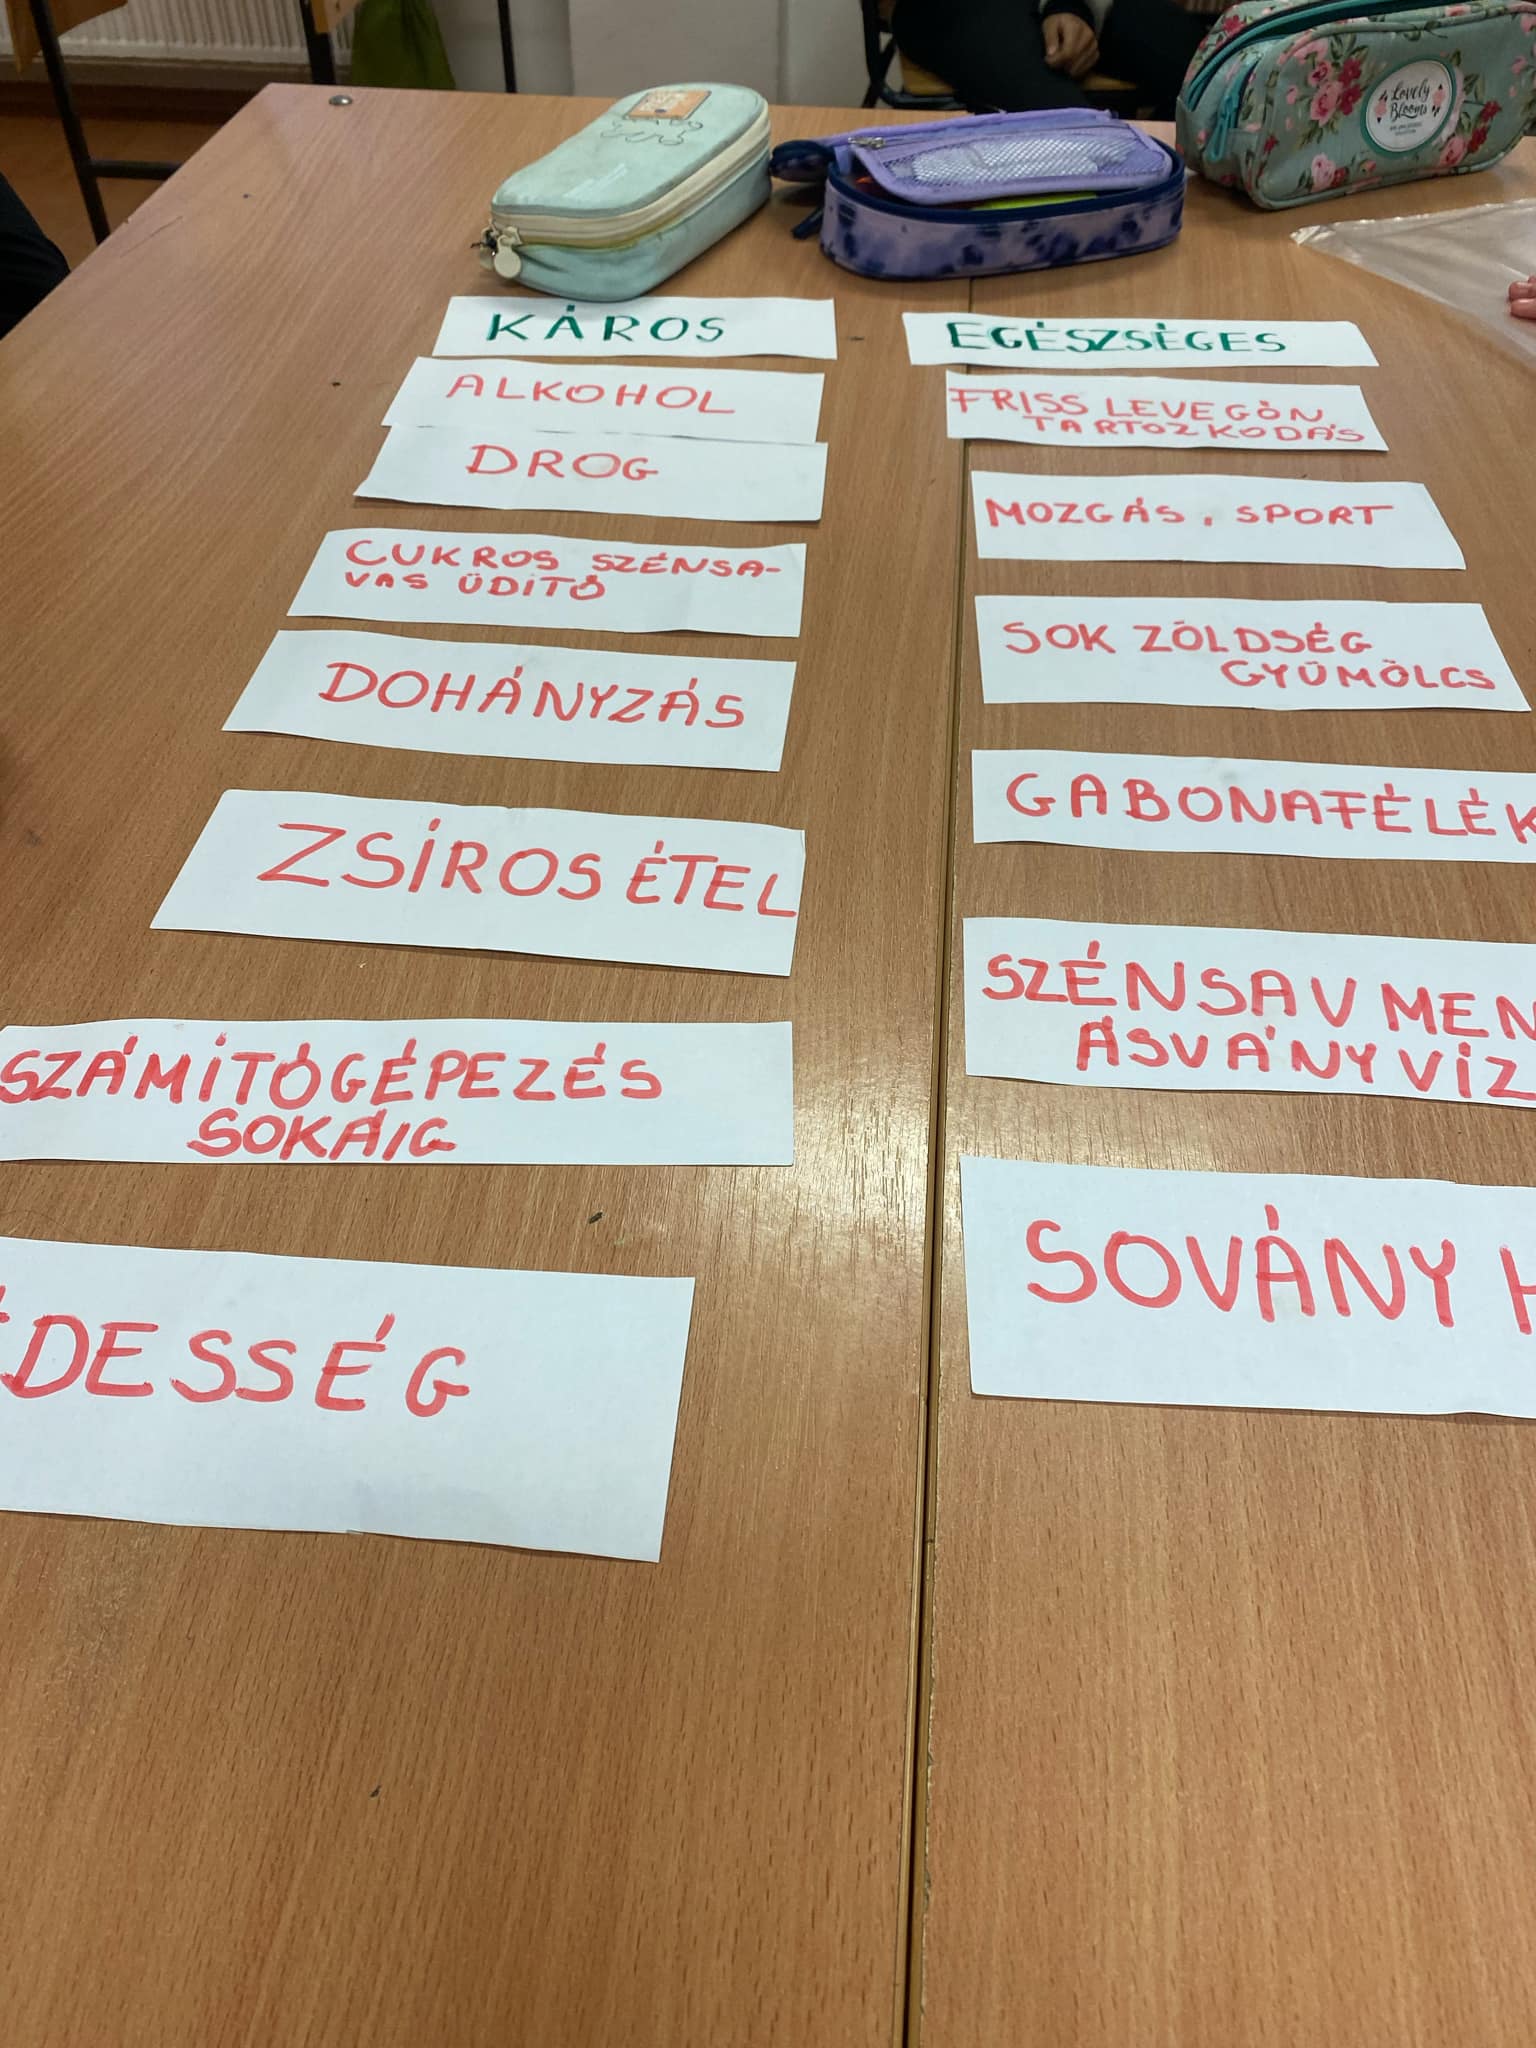 Lovely
Blooms
KÁROS
ALKOHOL
DROG
CUKROS SZÉNSA-
VAS ÜDÍTŐ
DOHÁNYZÁS
ZSÍROS ÉTEL
SZÁMÍTÓGÉPEZÉS
SOKÁIG
DESSÉG
EGÉSZSÉGES
FRISS LEVEGŐN
TARTOZKODÁS
MOZGÁS, SPORT
SOK ZÖLDSÉG
GYÜMÖLCS
GABONAFÉLÉK
SZÉNSAVMEN
ÁSVÁNYVÍZ
SOVÁNY H